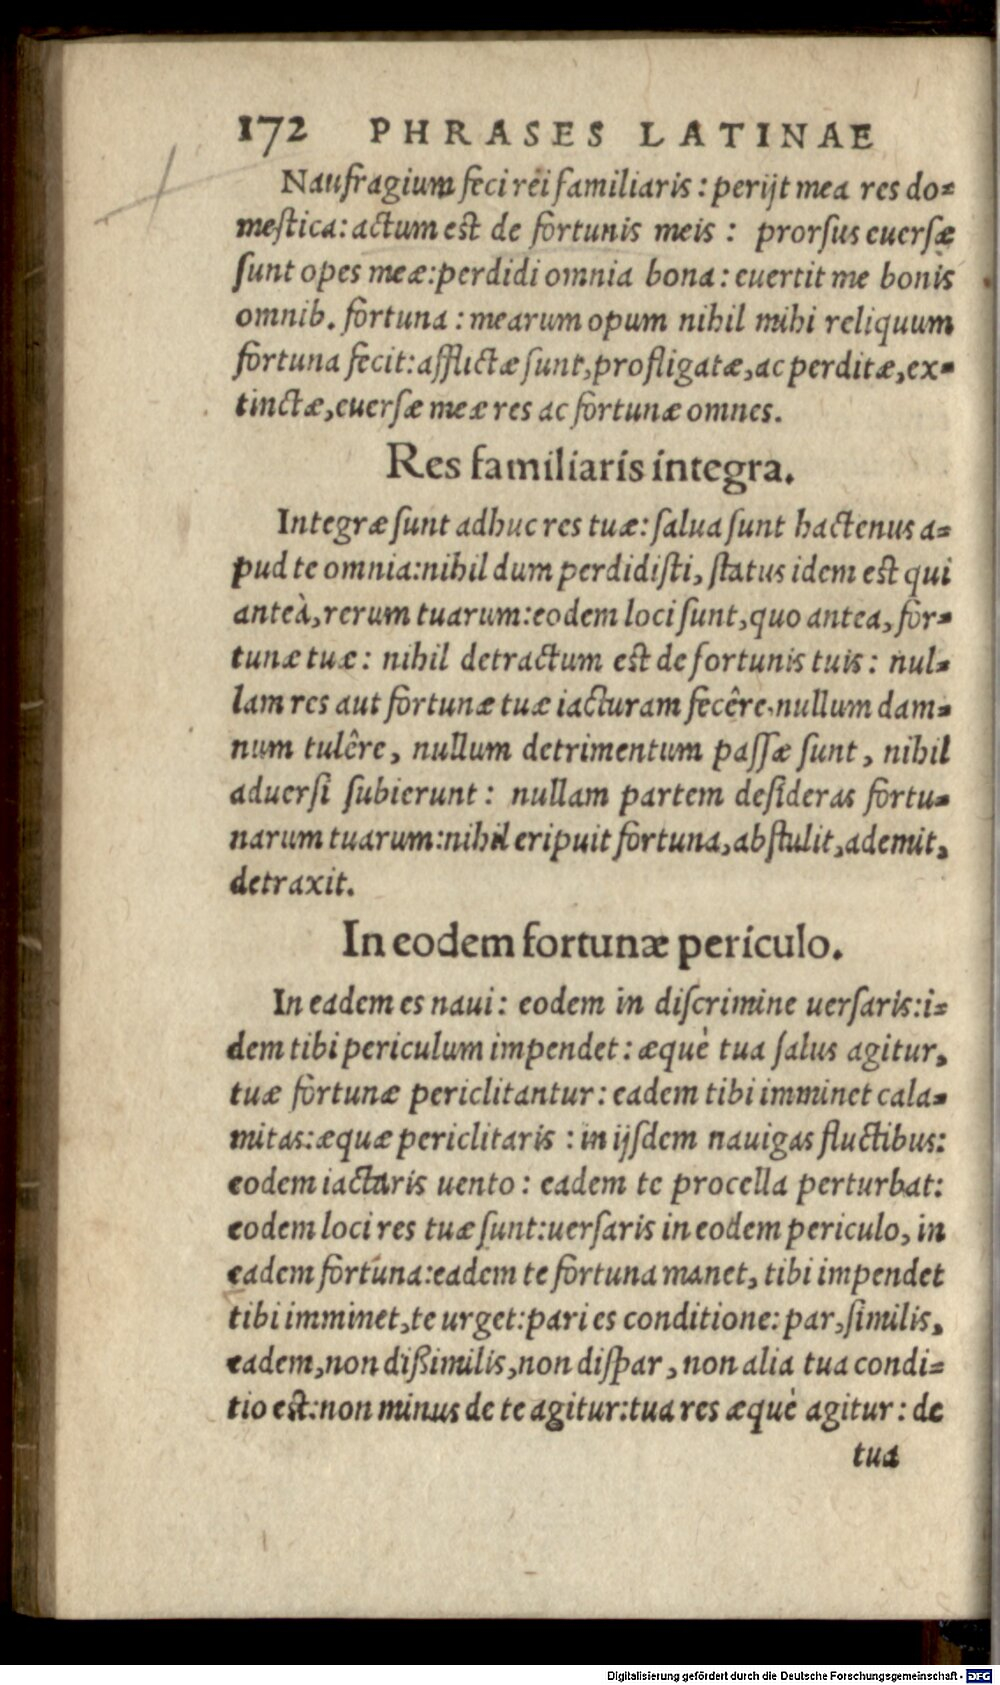 172 PHRASES LATINAE
Naufragium feci rei familiaris: perijt mea res do-
mestica: actum est de fortunis meis: prorsus euersæ
sunt opes meæ: perdidi omnia bona: euertit me bonis
omnib. fortuna: mearum opum nihil mihi reliquum
fortuna fecit: afflictæ sunt, profligatæ, ac perditæ, ex-
tinctæ, euersæ meæ res ac fortunæ omnes.
Res familiaris integra.
Integræ sunt adhuc res tuæ: salua sunt hactenus a-
pud te omnia: nihil dum perdidisti, status idem est qui
anteà, rerum tuarum: eodem loci sunt, quo antea, for-
tunæ tuæ: nihil detractum est de fortunis tuis: nul-
lam res aut fortunæ tuæ iacturam fecêre, nullum dam-
num tulêre, nullum detrimentum passæ sunt, nihil
aduersi subierunt: nullam partem desideras fortu-
narum tuarum: nihil eripuit fortuna, abstulit, ademit,
detraxit.
In eodem fortunæ periculo.
In eadem es naui: eodem in discrimine uersaris: i-
dem tibi periculum impendet: æquè tua salus agitur,
tuæ fortunæ periclitantur: eadem tibi imminet cala-
mitas: æquæ periclitaris: in ijsdem nauigas fluctibus:
eodem iactaris uento: eadem te procella perturbat:
eodem loci res tuæ sunt: uersaris in eodem periculo, in
eadem fortuna: eadem te fortuna manet, tibi impendet
tibi imminet, te urget: pari es conditione: par, similis,
eadem, non dißimilis, non dispar, non alia tua condi-
tio est: non minus de te agitur: tua res æquè agitur: de
tua
Digitalisierung gefördert durch die Deutsche Forschungsgemeinschaft - DFG